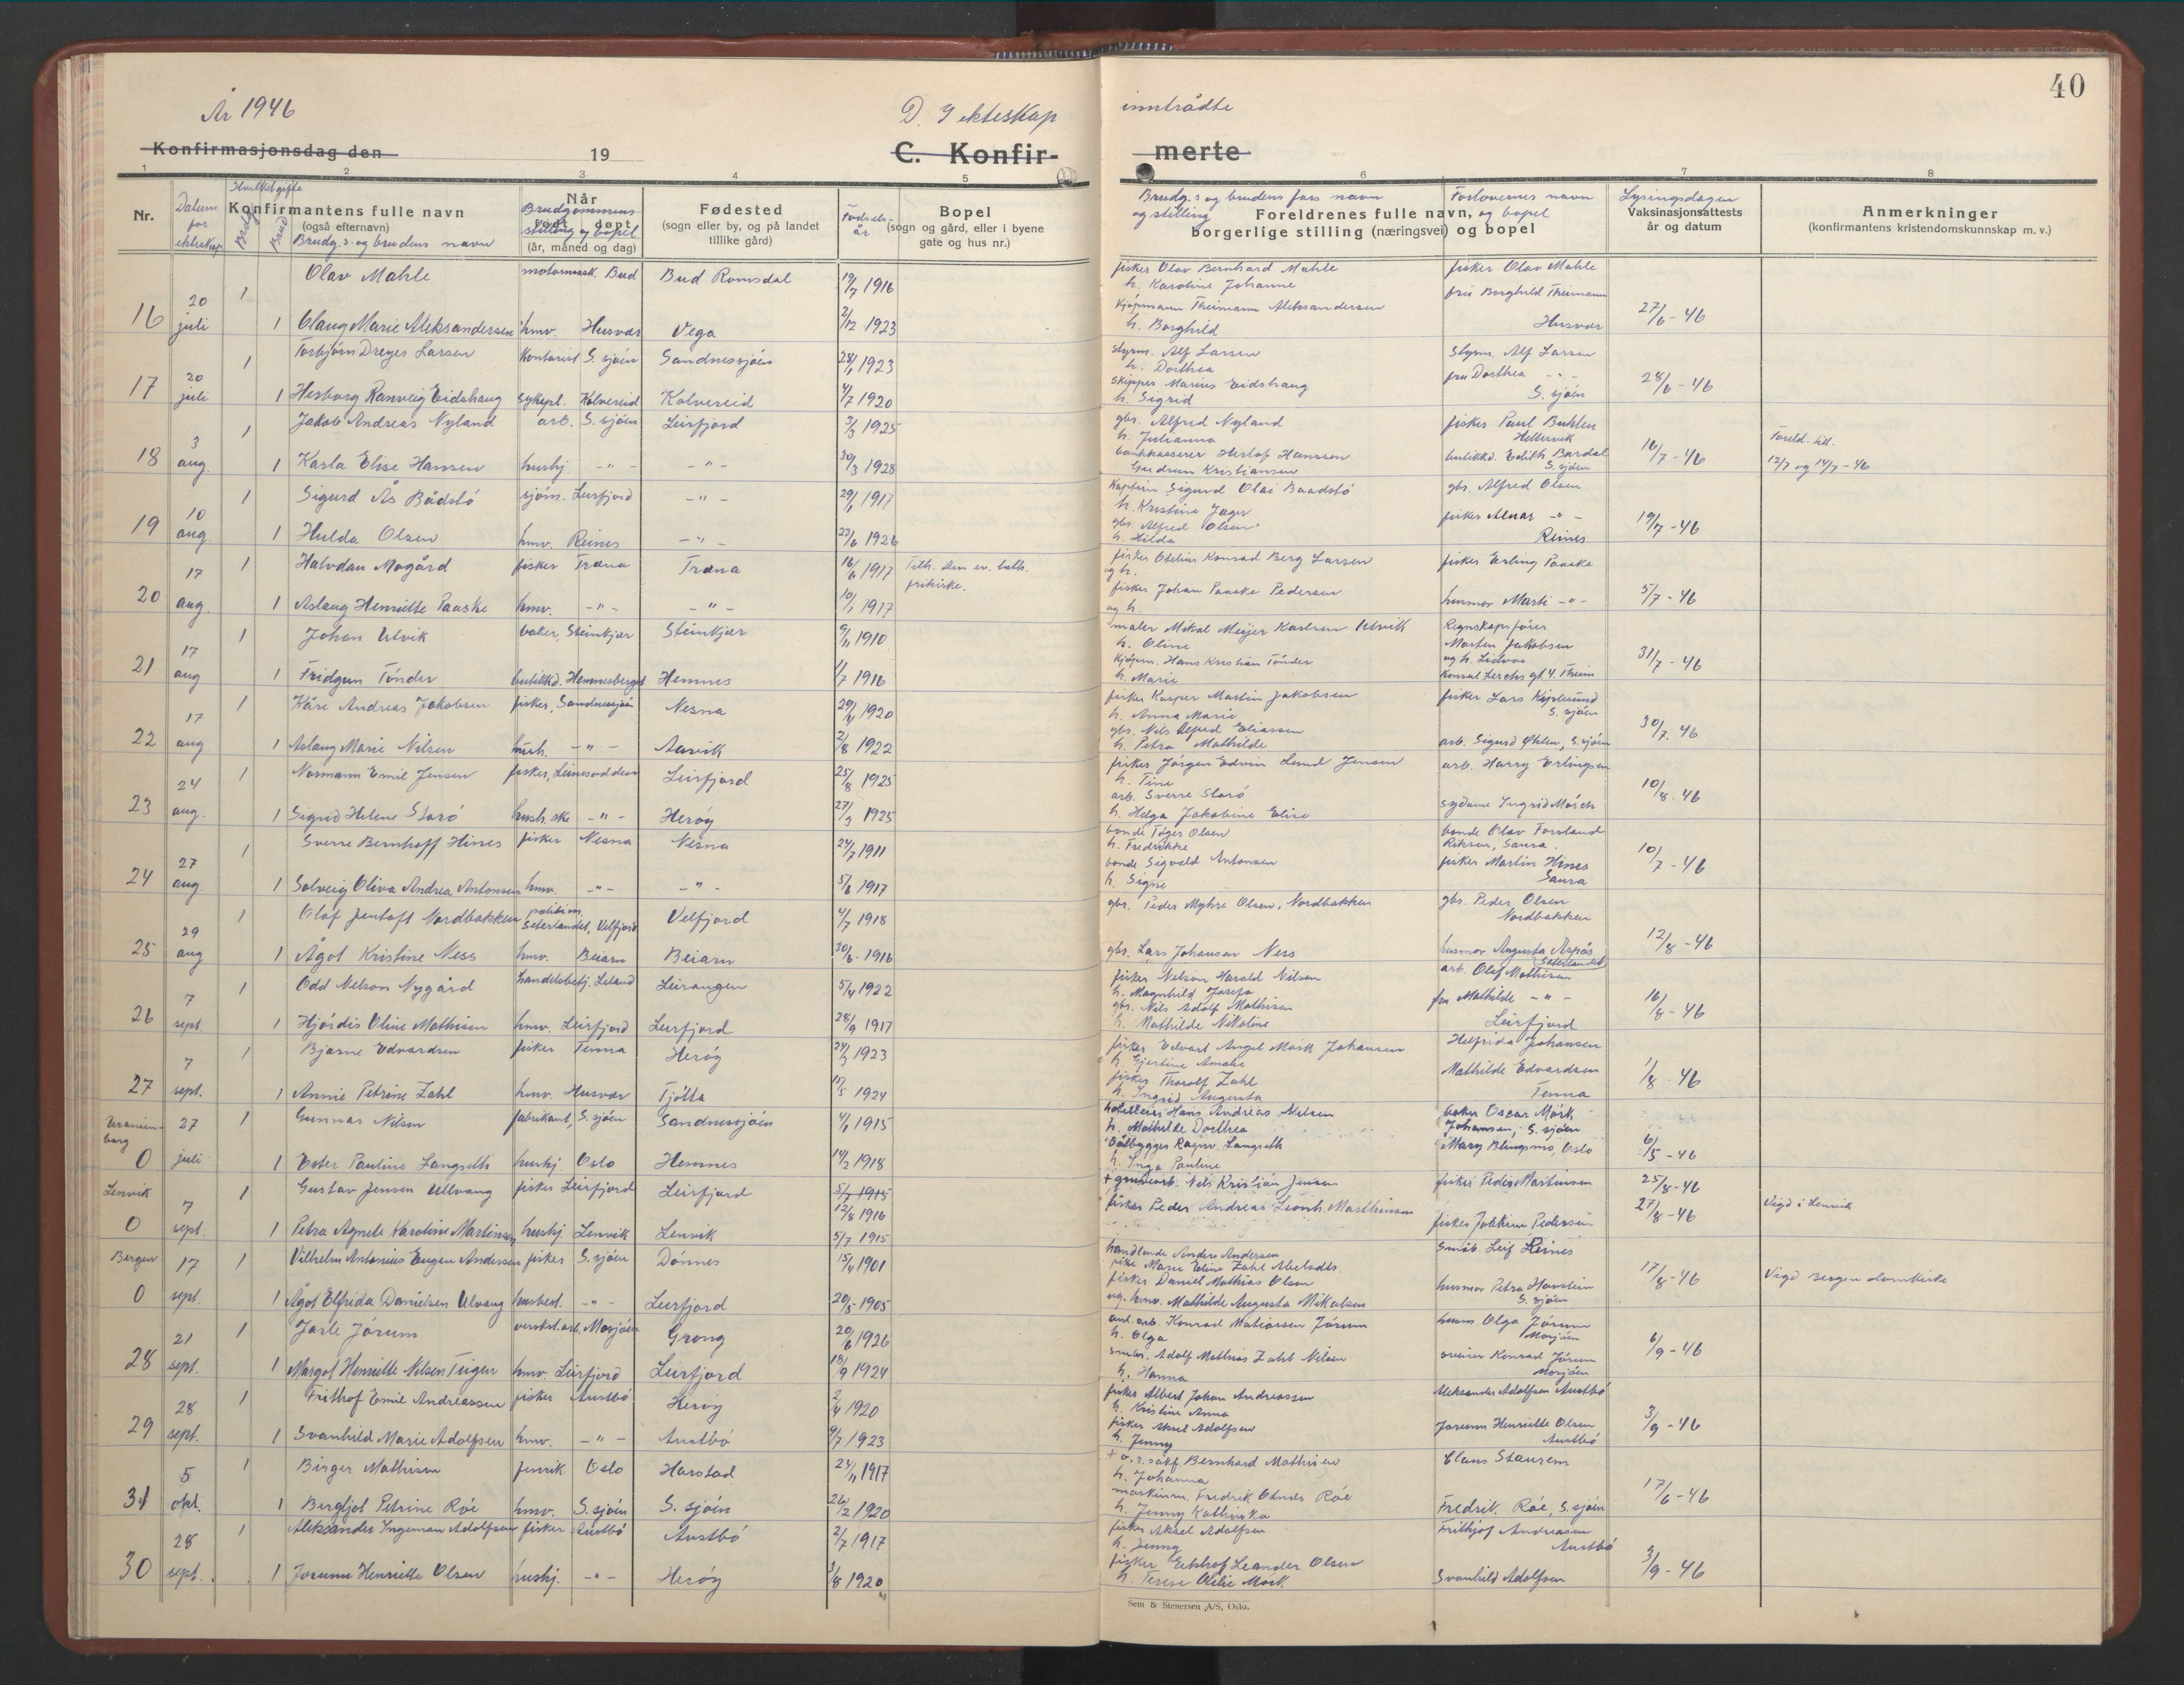 40
År 1946
D. Ekteskap inntrådte
Konfirmasjonsdag den 19
C. Konfirmerte
1 2 3 4 5 6 7 8
Nr.
Datum for ekteskap
Hvilket gifte
Brudg. Brud
Konfirmantens fulle navn
(også efternavn)
Brudg.s og brudens navn
Når
født døpt
Brudgommens stilling og bopel
(år, måned og dag)
Fødested
(sogn eller by, og på landet tillike gård)
Fødselsår
Bopel
(sogn og gård, eller i byene gate og hus nr.)
Brudg.s og brudens fars navn og stilling
Foreldrenes fulle navn, og bopel
borgerlige stilling (næringsvei) og bopel
Forlovernes navn
Lysingsdagen
Vaksinasjonsattests år og datum
Anmerkninger
(konfirmantens kristendomskunnskap m. v.)
1 Olav Mahle Bud Bud Romsdal 19/7 1916 fisker Olav Bernhard Mahle fisker Olav Mahle
h. Karoline Johanne fru Borghild Theimann
16 20 juli 1 Olaug Marie Aleksandersen hmv. Husvær Vega 2/12 1923 Kjøpmann Theimann Aleksandersen Husvær 27/6-46
h. Borghild
1 Torbjørn Dreyer Larsen Kontorist S. sjøen Sandnessjøen 28/1 1923 styrm. Alf Larsen styrm. Alf Larsen
h. Dorthea fru Dorthea -"-
17 20 juli 1 Hesborg Ranveig Eidshaug sykepl. Kolvereid Kolvereid 4/7 1920 skipper Marius Eidshaug S. sjøen 28/6-46
h. Sigrid
1 Jakob Andreas Nyland arb. S. sjøen Leirfjord 3/3 1925 gbr. Alfred Nyland fisker Paul Buhlen
h. Julianna Hellesvik
18 3 aug. 1 Karla Elise Hansen hushj -"- -"- 30/3 1928 bankkasserer Herlof Hanssen butikkd. Edith Bardal 16/7-46 Foreld. till.
Gudrun Kristiansen S. sjøen 12/7 og 14/7-46
1 Sigurd Ås Bådstø sjøm. Leirfjord -"- 29/1 1917 Kaptein Sigurd Olai Baadstø gbr. Alfred Olsen
h. Kristine Jæger fisker Alnar -"-
19 10 aug. 1 Hulda Olsen hmv. Reines -"- 23/6 1926 gbr. Alfred Olsen Reines 19/7-46
h. Hilda
1 Halvdan Mogård fisker Træna Træna 16/6 1917 Tilh. den ev. luth. frikirke. fisker Otelius Konrad Berg Larsen fisker Erling Paaske
og h.
20 17 aug. 1 Aslaug Henriette Paaske hmv. -"- -"- 10/1 1917 fisker Johan Paaske Pedersen husmor Marti -"- 5/7-46
og h.
1 Johan Utvik baker, Steinkjer Steinkjer 9/11 1910 maler Mikal Meijer Karlsen Utvik Regnskapsfører
h. Oline Morten Jakobsen
21 17 aug 1 Fridgun Tønder butikkd. Hemnesberget Hemnes 1/7 1916 Kjøpm. Hans Kristian Tønder og h. 31/7-46
h. Marie Konsul Lerches gt. 4. Theim
1 Kåre Andreas Jakobsen fisker, Sandnessjøen Nesna 29/4 1920 fisker Kasper Martin Jakobsen fisker Lars
h. Anna Marie S. sjøen
22 17 aug 1 Aslaug Marie Nilsen hush. -"- Aasvik 2/8 1922 gbr. Nils Alfred Eliassen arb. Sigurd Øhlen, S. sjøen 30/7.46
h. Petra Mathilde
1 Normann Emil Jensen fisker, Leinesodden Leirfjord 25/8 1925 fisker Jørgen Edvin Lund Jensen arb. Harry Erlingsen
h. Tine
23 24 aug. 1 Sigrid Helene Storø -"- Herøy 27/3 1925 arb. Sverre Storø sydame Ingrid Mörch 10/8.46
h. Helga Jakobine Elise
1 Sverre Bernhoff Hines fisker Nesna Nesna 24/7 1911 bonde Tøger Olsen bonde Olav Forsland
h. Fredrikke
24 27 aug 1 Solveig Oliva Andrea Antonsen hmv. -"- -"- 5/6 1917 bonde Sigvald Antonsen fisker Martin Hines 10/7-46
h. Signe Saura
1 Olaf Jentoft Nordbakken Velfjord Velfjord 4/7 1918 gbr. Peder Myhre Olsen, Nordbakken gbr. Peder Olsen
Nordbakken
25 29 aug 1 Ågot Kristine Ness hmv. Beiarn Beiarn 30/6-1916 gbr. Lars Johansen Ness husmor Augusta Aspås 12/8-46
1 Odd Nelson Nygård Handelsbetj. Leland Leirangen 5/4 1922 fisker Nelson Harald Nilsen arb. Olef Mathisen
h. Magnhild Josefa fru Mathilde -"-
26 7 sept. 1 Hjørdis Oline Mathisen hmv. Leirfjord Leirfjord 28/9 1917 gbr. Nils Adolf Mathisen Leirfjord 16/8-46
h. Mathilde Nikoline
1 Bjarne Edvardsen fisker Tenna Herøy 24/3 1923 fisker Edvart Angel Mørk Johansen Helfrida Johansen
h. Gjertine Amalie
27 7 sept. 1 Annie Petrine Zahl hmv. Husvær Tjøtta 15/5 1924 fisker Thoralf Zahl Mathilde Edvardsen 1/8-46
h. Ingrid Augusta Tenna
Uranienborg 1 Gunnar Nilsen fabrikant, S. sjøen Sandnessjøen 4/1 1915 Hans Andreas Nilsen baker Oscar Mørk
h. Mathilde Dorthea Johansen, S. sjøen
0 27 juli 1 Ester Pauline Langseth hushj. Oslo Hemnes 14/2 1918 Båtbygger Ragnv. Langseth Mary Blingsmo, Oslo 6/5-46
h. Inga Pauline
Lenvik 1 Gustav Jensen Ullvang fisker Leirfjord Leirfjord 5/7 1915 12/8 1916 + Nils Kristian Jensen fisker Peder Martinsen 25/8-46
0 7 sept. 1 Petra Agnete Karoline Martinsen hushj Lenvik Lenvik 5/7 1915 fisker Peder Andreas Leonh. Marthinsen fisker Joakim Pedersen 27/8-46 Vigd i Lenvik
Bergen 1 Vilhelm Antonius Eugen Andersen fisker S. sjøen Dønnes 15/4 1901 handlende Anders Andersen Småb. Leif Reines
pike Marie Edine Zahl Abelsdtr.
0 17 sept. 1 Ågot Elfrida Danielsen Ulvang husbest. -"- Leirfjord 20/5-1905 fisker Daniel Mathias Olsen husmor Petra Haustein 17/8-46 Vigd Bergen domkirke
og hmv. Mathilde Augusta Mikalsen S. sjøen
1 Jarle Jørum verkst.arb. Mosjøen Grong 20/6 1926 anl.arb. Konrad Matiassen Jørum husm Olga Jørum
h. Olga Mosjøen
28 21 sept. 1 Margot Henriette Nilsen Teigen hmv. Leirfjord Leirfjord 18/9 1924 småbr. Adolf Mathias Zahl Nilsen Konrad Jørum 6/9-46
h. Hanna Mosjøen
1 Frithof Emil Andreassen fisker Austbø Herøy 2/4 1920 fisker Albert Johan Andreassen Aleksander Adolfsen Austbø
h. Kristine Anna
29 28 sept. 1 Svanhild Marie Adolfsen hmv. -"- Austbø 9/7 1923 fisker Aksel Adolfsen Jorunn Henriette Olsen 3/9-46
h. Jenny Austbø
1 Birger Mathisen Oslo Harstad 24/11 1917 + o.r.sakf. Bernhard Mathisen Claus Staurem
h. Johanna
31 5 okt. 1 Bergljot Petrine Röe hmv. S. sjøen S. sjøen 26/2 1920 maskinm. Fredrik Röe Fredrik Röe, S. sjøen 17/6-46
h. Jenny Kathinka
1 Aleksander Ingeman Adolfsen fisker Austbø Austbø 2/7 1917 fisker Aksel Adolfsen Frithjof Andreassen
h. Jenny Austbø
30 28 sept. 1 Jorunn Henriette Olsen hushj. -"- Herøy 3/8 1920 fisker Leander Olsen Svanhild Adolfsen 3/9-46
h. Terese Otilie Mørk.
Sem & Stenersen A/S, Oslo.